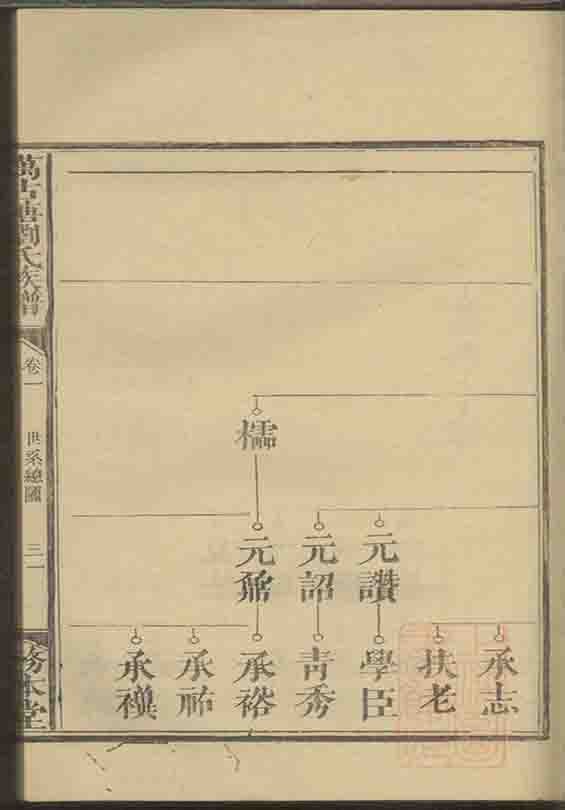 萬古塘劉氏族譜
卷一
世系總圖
三一
務本堂
檽
元讚
元詔
元鼐
承志
扶老
學臣
青秀
承裕
承祐
承禩